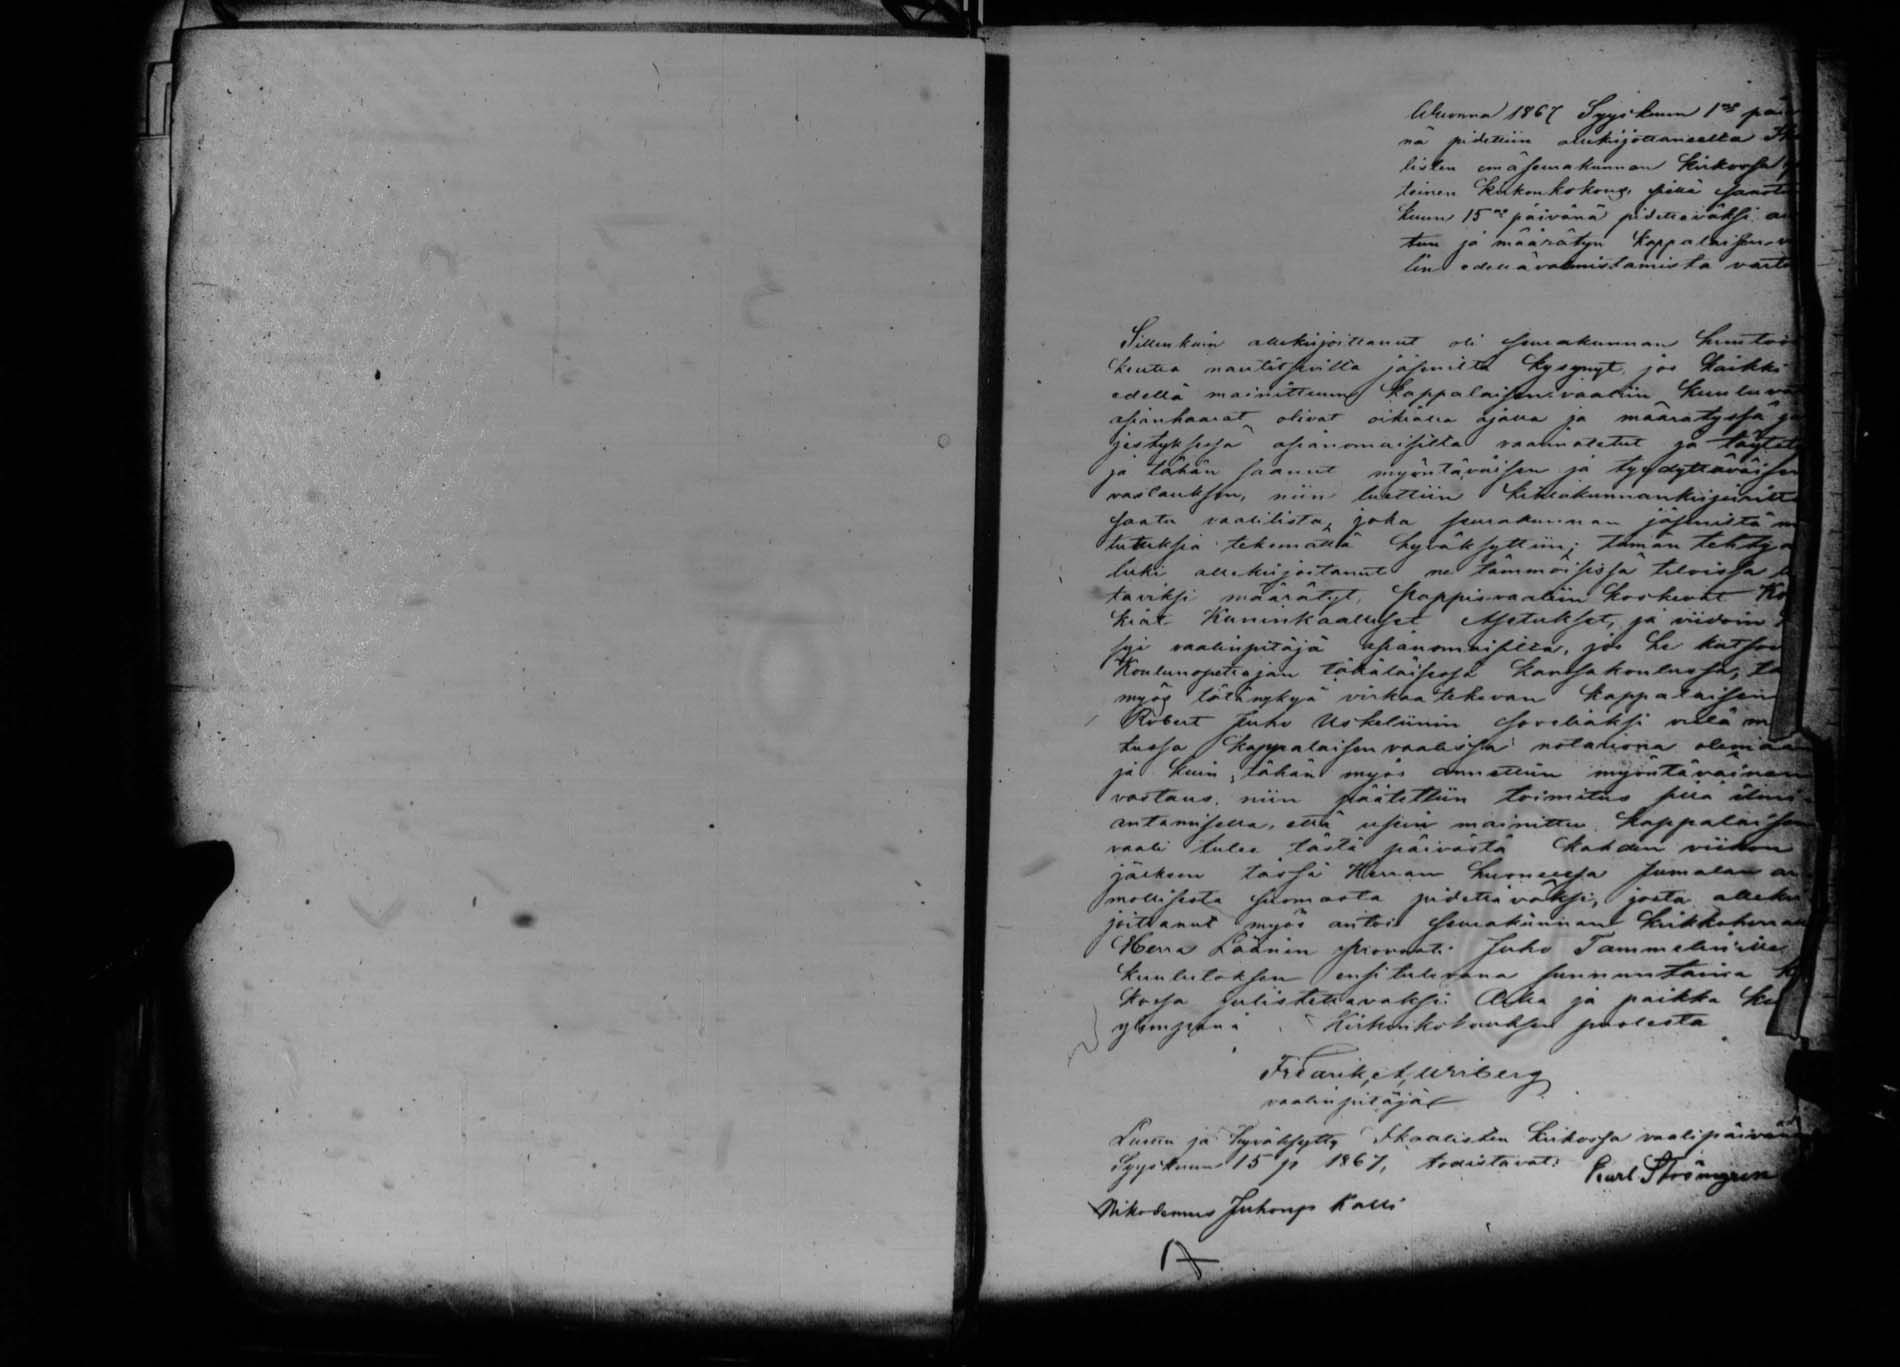 Wuonna 1867 Syyskuun 1nä päi
nä pidettiin allekirjoittaneelta Ika
listen emäseurakunnan kirkossa
toinen kirkonkokous, sillä saman
kuun 15nä päivänä pidettäväksi
tun ja määrätyn kappalaisen va
lin edelläwalmistamista varten
Sittenkuin allekirjoittanut oli seurakunnan
keutta nautitsevilta jäseniltä kysynyt, jos kaikki
edellä mainittuun kappalaisen vaaliin kuuluvat
asianhaarat olivat oikialla ajalla ja määrätyssä jär
jestyksessä asianomaisilta vaarinotetut ja täytet
ja tähän saanut myöntäväisen ja tyydyttäväisen
vastauksen, niin luettiin kihlakunnankirjurilta
saatu vaalilista, joka seurakunnan jäseniltä m
tutuksia tekemättä hyväksyttiin; tämän tehtyä
luki allekirjoitanut ne tämmöisissä tiloissa
taviksi määrätyt, Pappisvaaliin koskevat Ko
kiat Kuninkaalliset Asetukset, ja viidoin
syi vaalinpitäjä asianomaisilta, jos he katsoi
Koulunopettajan täkäläisessä kansakoulussa,
myös tätänykyä virkaa tekevän kappalaisen
Robert Juho Uskeliinin soveliaksi
tussa kappalaisen vaalissa notariona olemaan
ja kuin tähän myös annettiin myöntäväinen
vastaus, niin päätettiin toimitus sillä ilmi
antamisella, että usein mainittu kappalaisen
vaali tulee tästä päivästä kahden viikon
jälkeen tässä Herran huoneessa Jumalan ar
mollisesta suomasta pidettäväksi, josta alleki
joittanut myös antoi seurakunnan kirkkoherran
Herra Läänin Provasti Juho Tammelinille
kuulutoksen ensitulevana sunnuntaina
kossa julistettavaksi. Aika ja paikka kuin
ylempänä Kirkonkokouksen puolesta
Fredrik A. Wriberg
vaalinpitäjä
Luettu ja hyväksytty Ikaalisten kirkossa vaalipäivänä
Syyskuun 15 p 1867, todistavat:
Karl Strömgren
Nikodemus Juhonp Kalli